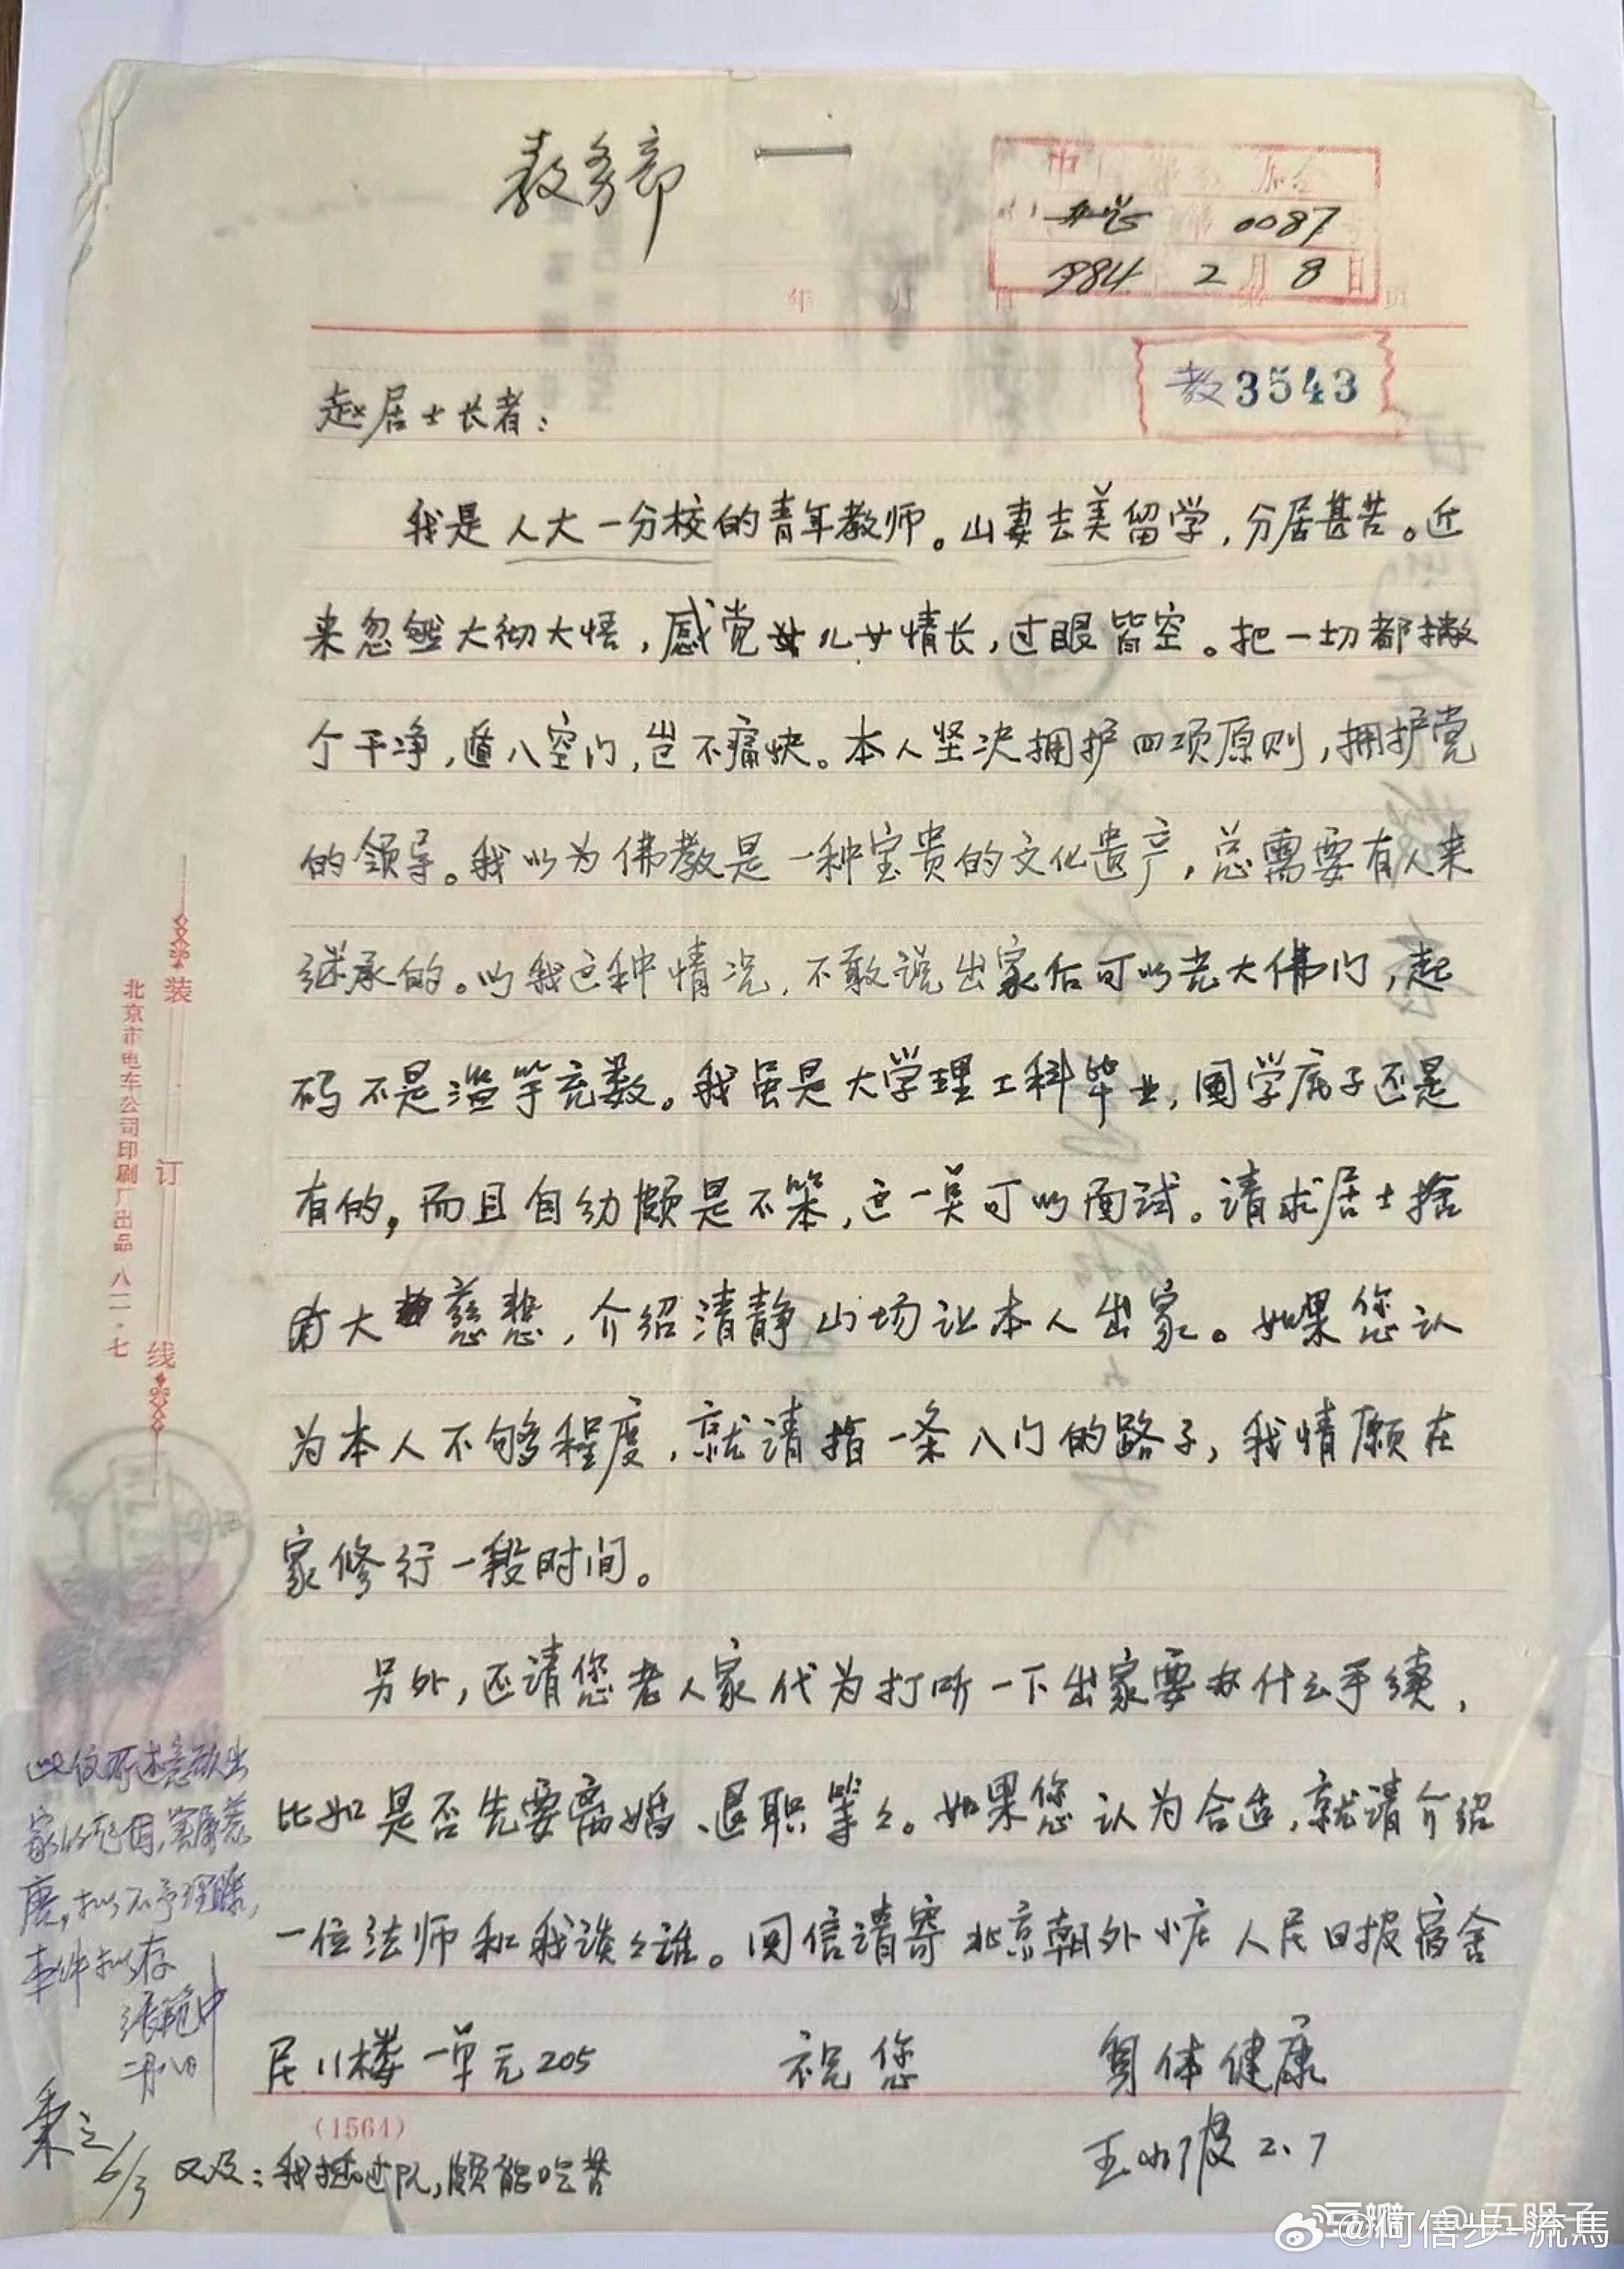 教务部
0087
1984 2月8日
年 月 日 页
教3543
赵居士长者：
我是人大一分校的青年教师。山妻去美留学，分居甚苦。近
来忽然大彻大悟，感觉儿女情长，过眼皆空。把一切都撇
个干净，遁入空门，岂不痛快。本人坚决拥护四项原则，拥护党
的领导。我以为佛教是一种宝贵的文化遗产，总需要有人来
继承的。以我这种情况，不敢说出家后可以光大佛门，起
码不是滥竽充数。我虽是大学理工科毕业，国学底子还是
有的，而且自幼颇是不笨，这一点可以面试。请求居士捨
大慈悲，介绍清静山场让本人出家。如果您认
为本人不够程度，就请指一条入门的路子，我情愿在
家修行一段时间。
另外，还请您老人家代为打听一下出家要办什么手续，
比如是否先要离婚、退职等々。如果您认为合适，就请介绍
一位法师和我谈々话。回信请寄北京朝外小庄人民日报宿舍
民11楼一单元205 祝您 身体健康
王小波 2.7
(1564)
又及：我插过队，颇能吃苦
装订线
北京市电车公司印刷厂出品 八二·七
此信所述意欲出
家的起因，实属荒
唐，拟不予理睬，
来件拟存
张范中
二月八日
6/3
@何信步_流馬